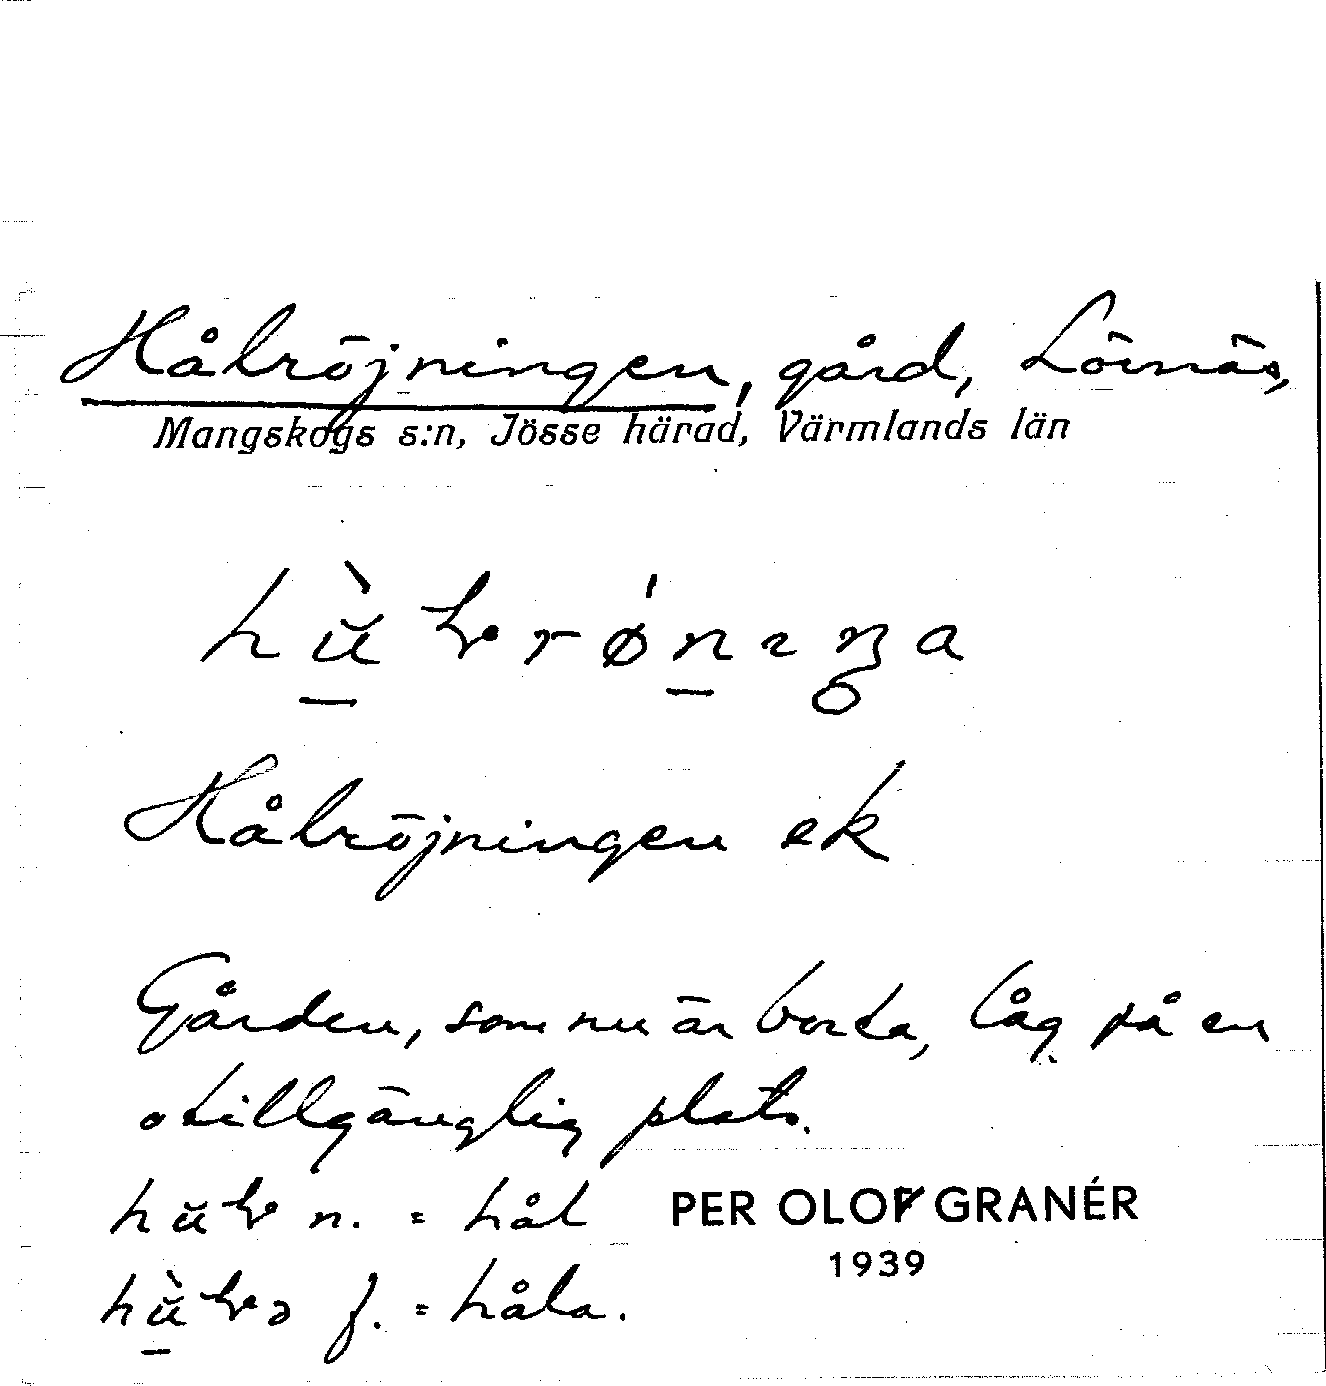 Hålröjningen, gård, Lörnäs,
Mangskogs s:n, Jösse härad, Värmlands län
Hålröjningen ek
Gården, som nu är borta, låg på en
otillgänglig plats.
n. = hål
PER OLOF GRANÉR
1939
f. = håla.